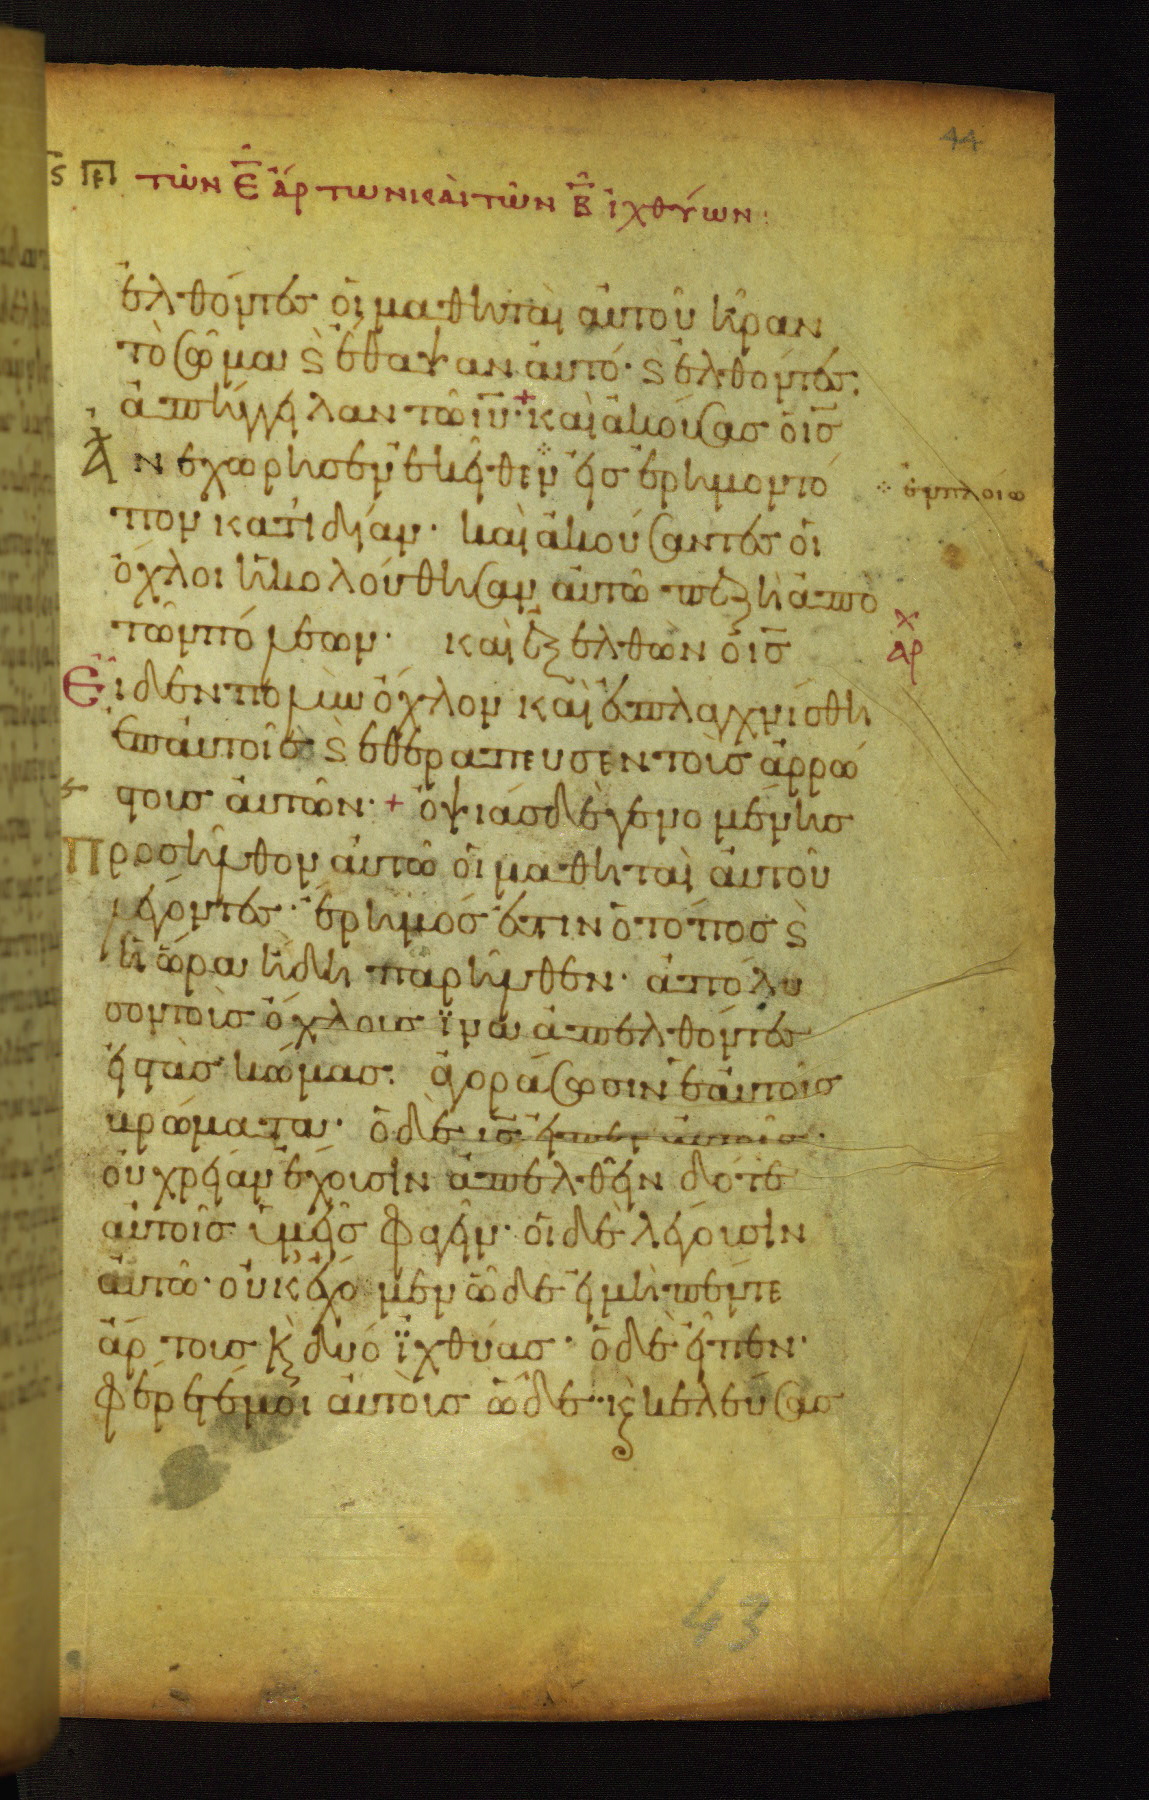 44
τῶν ε̅ ἄρτων καὶ τῶν β̅ ἰχθύων:
ἐλθόντες οἱ μαθηταὶ αὐτοῦ ἦραν
τὸ σῶμα ϛ̀ ἔθαψαν αὐτό· ϛ̀ ἐλθόντες
ἀπήγγειλαν τῶ ι̅υ̅·+ καὶ ἀκούσας ὁ ι̅σ̅
Ἀνεχώρησεν ἐκεῖθεν εἰς ἔρημον τό
ἐν πλοίω
πον κατ ἰδίαν· καὶ ἀκούσαντες οἱ
ὄχλοι ἠκολούθησαν αὐτῶ πεζῆ ἀπὸ
τῶν πόλεων· καὶ ἐξελθὼν ὁ ι̅σ̅
χ
αρ
Εἶδεν πολὺν ὄχλον καὶ ἐσπλαγχνίσθη
ἐπ αὐτοῖς ϛ̀ ἐθεράπευσεν τοὺς ἀρρώ
στους αὐτῶν·+ ὀψίας δὲ γενομένης
Προσῆλθον αὐτῶ οἱ μαθηταὶ αὐτοῦ
λέγοντες· ἔρημός ἐστιν ὁ τόπος ϛ̀
ἡ ὥρα ἤδη παρῆλθεν· ἀπόλυ
σον τοὺς ὄχλους ἵνα ἀπελθόντες
εἰς τὰς κώμας· ἀγοράσωσιν ἑαυτοῖς
βρώματα· ὁ δὲ ι̅σ̅ εἶπεν αὐτοῖς·
οὐ χρείαν ἔχουσιν ἀπελθεῖν δότε
αὐτοῖς ὑμεῖς φαγεῖν· οἱ δὲ λέγουσιν
αὐτῶ· οὐκ ἔχομεν ὧδε εἰ μὴ πέντε
ἄρτους κ̀ δύο ἰχθύας· ὁ δὲ εἶπεν·
φέρετέ μοι αὐτοὺς ὧδε· κ̀ κελεύσας
43